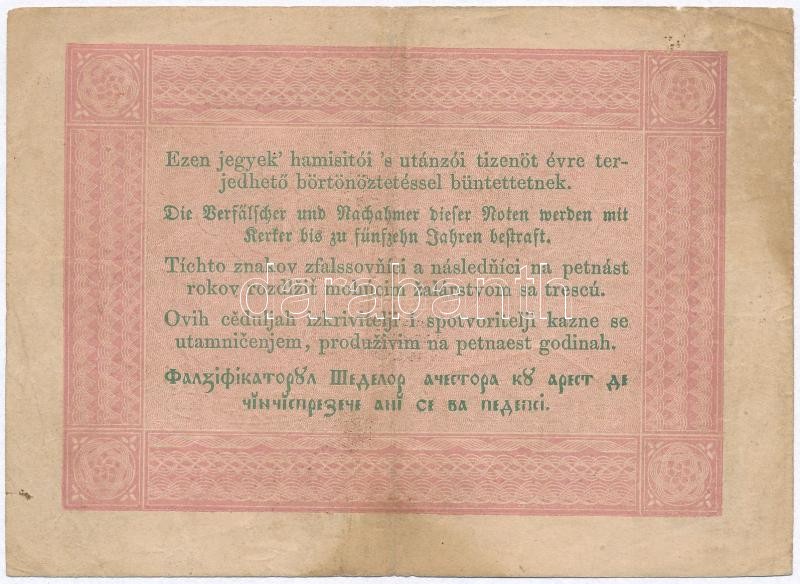 Ezen jegyek' hamisitói 's utánzói tizenöt évre ter-
jedhető börtönöztetéssel büntettetnek.
Die Verfälscher und Nachahmer dieser Noten werden mit
Kerker bis zu fünfzehn Jahren bestraft.
Tíchto znakov zfalssovňíti a následňíci na petnást
rokov rozdlžiť mohúcim žalárstvom sa trescú.
Ovih cěduljah izkrivitelji i spotvoritelji kazne se
utamničenjem, produživim na petnaest godinah.
Фалзіфікаторꙋл Шеделор ачестора кꙋ арест де
чінчіспрезече ані се ва педепсі.
darabanth